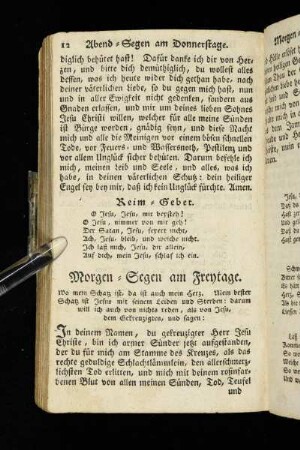 12 Abend-Segen am Donnerstage.
diglich behütet hast! Dafür danke ich dir von Her-
zen, und bitte dich demüthiglich, du wollest alles
dessen, was ich heute wider dich gethan habe, nach
deiner väterlichen Liebe, so du gegen mich hast, nun
und in aller Ewigkeit nicht gedenken, sondern aus
Gnaden erlassen, und mir um deines lieben Sohnes
Jesu Christi willen, welcher für alle meine Sünden
ist Bürge worden, gnädig seyn, und diese Nacht
mich und alle die Meinigen vor einem bösen schnellen
Tod, vor Feuers- und Wassersnoth, Pestilenz und
vor allem Unglück sicher behüten. Darum befehle ich
mich, meinen Leib und Seele, und alles, was ich
habe, in deinen väterlichen Schutz: dein heiliger
Engel sey bey mir, daß ich kein Unglück fürchte. Amen.
Reim-Gebet.
O Jesu, Jesu, mir beysteh!
O Jesu, nimmer von mir geh!
Der Satan, Jesu, feyret nicht,
Ach, Jesu, bleib, und weiche nicht.
Ich laß mich, Jesu, dir allein,
Auf dich, mein Jesu, schlaf ich ein.
Morgen-Segen am Freytage.
Wo mein Schatz ist, da ist auch mein Herz. Mein bester
Schatz ist Jesus mit seinem Leiden und Sterben: darum
will ich auch von nichts reden, als von Jesu,
dem Gekreuzigten, und sagen:
In deinem Namen, du gekreuzigter Herr Jesu
Christe, bin ich armer Sünder jetzt aufgestanden,
der du für mich am Stamme des Kreuzes, als das
rechte geduldige Schlachtlämmlein, den allerschmerz-
lichsten Tod erlitten, und mich mit deinem rosinfar-
benen Blut von allen meinen Sünden, Tod, Teufel
und
Morgen-